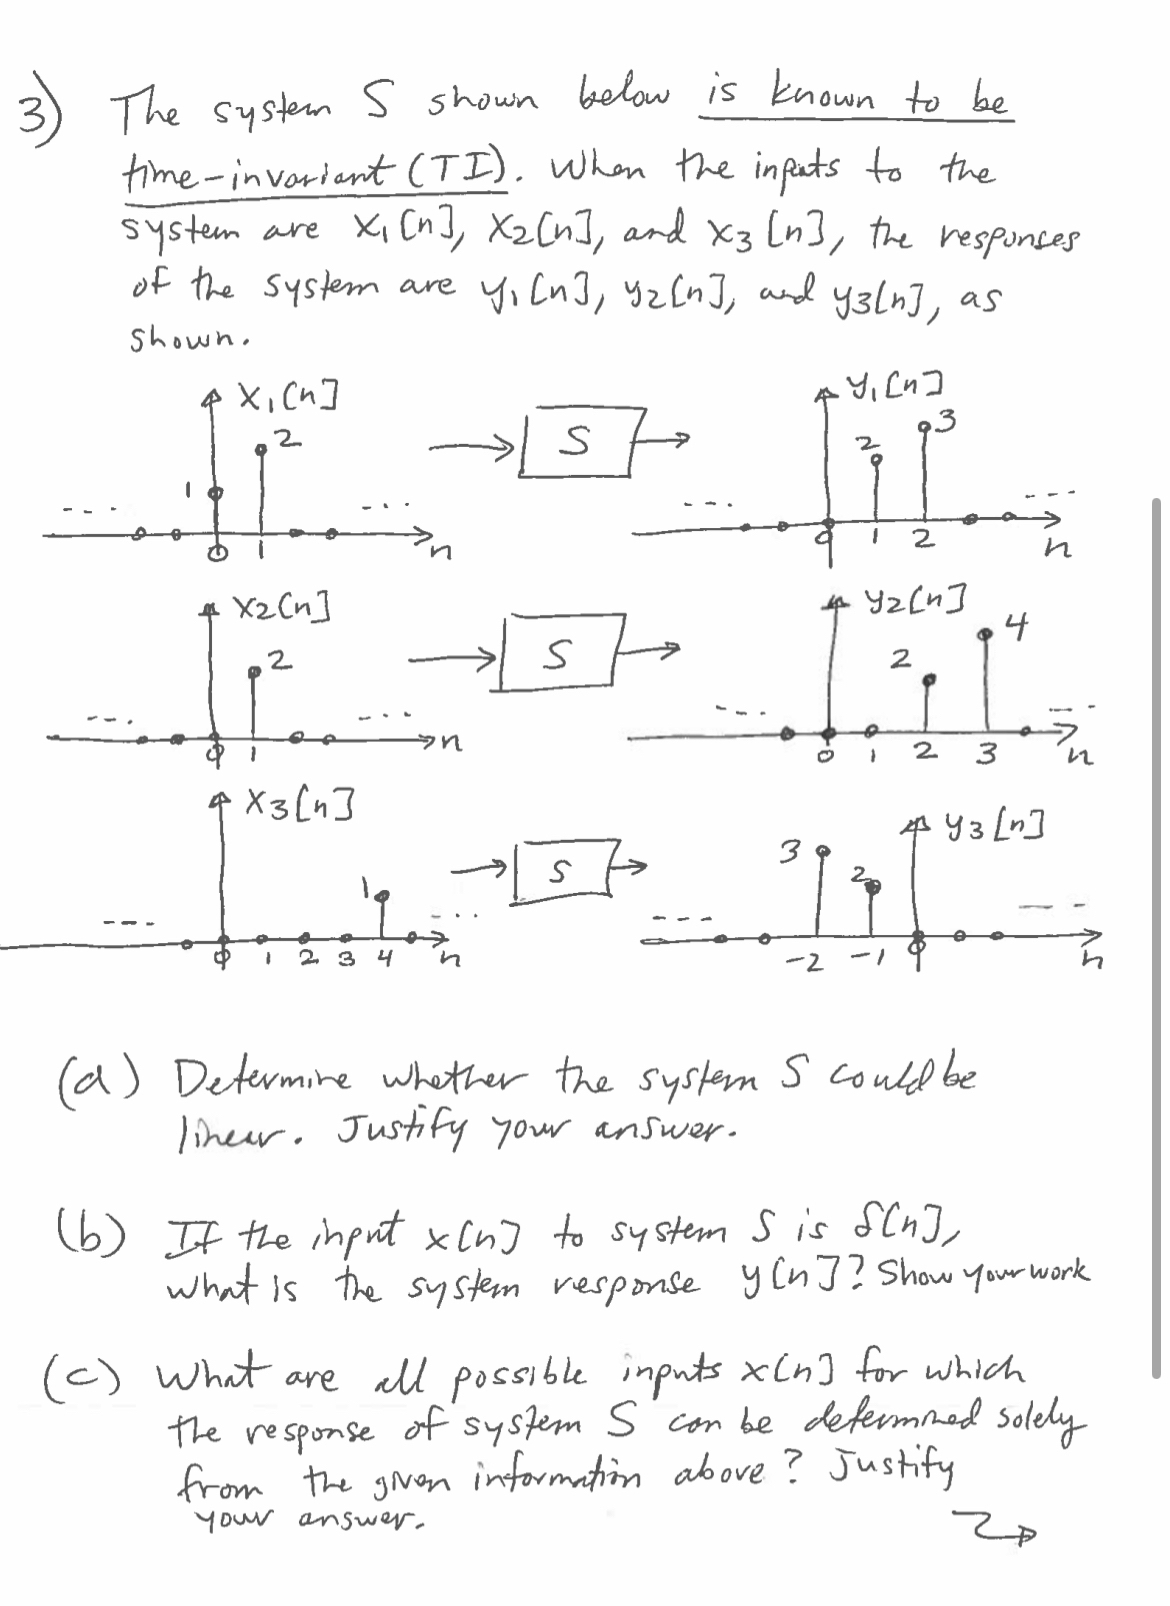 3) The system S shown below is known to be
time-invariant (TI). When the inputs to the
system are x1[n], x2[n], and x3[n], the responses
of the system are y1[n], y2[n], and y3[n], as
shown.
x1[n]
1
2
0 1 n
S
y1[n]
2
3
0 1 2 n
x2[n]
2
0 1 n
S
y2[n]
2
4
0 1 2 3 n
x3[n]
1
0 1 2 3 4 n
S
y3[n]
3
2
-2 -1 0 n
(a) Determine whether the system S could be
linear. Justify your answer.
(b) If the input x[n] to system S is δ[n],
what is the system response y[n]? Show your work
(c) What are all possible inputs x[n] for which
the response of system S can be determined solely
from the given information above? Justify
your answer.